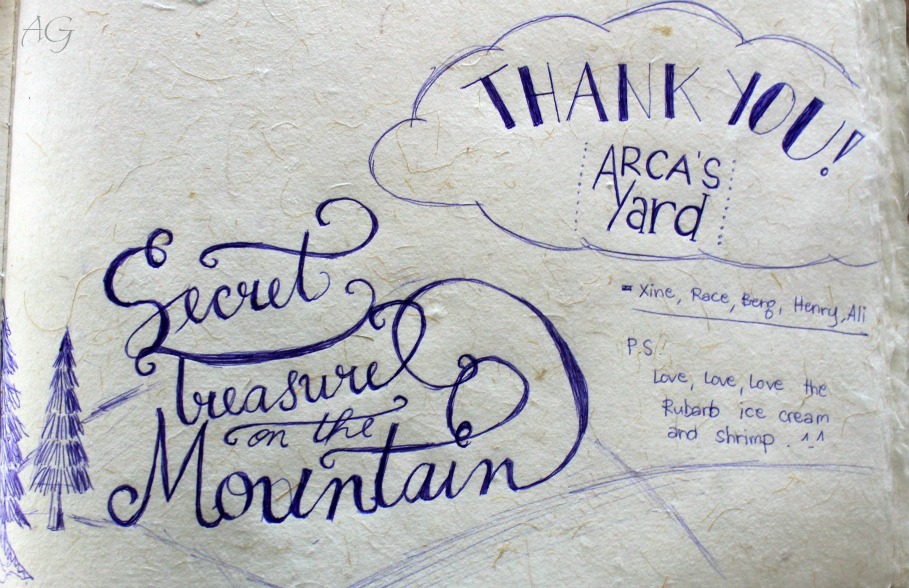 AG
THANK YOU!
ARCA'S
Yard
Secret
Treasure
on the
Mountain
- Xine, Race, Berg, Henry, Ali
P.S.
Love, Love, Love the
Rubarb ice cream
and shrimp. ^^